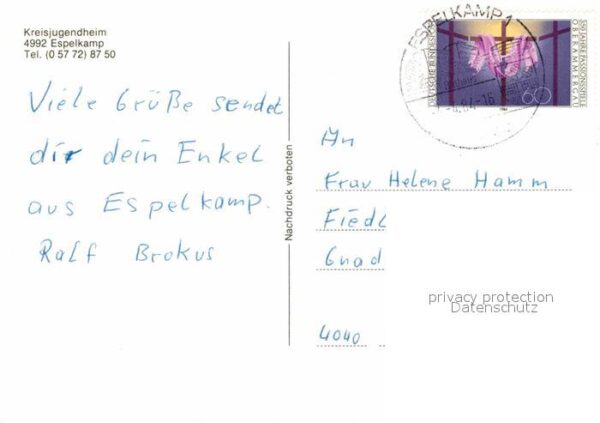 Kreisjugendheim
4992 Espelkamp
Tel. (0 57 72) 87 50
Viele Grüße sendet
dir dein Enkel
aus Espelkamp.
Ralf Brokus
Nachdruck verboten
ESPELKAMP 1
84-16
DEUTSCHE BUNDESPOST
350 JAHRE PASSIONSSPIELE
OBERAMMERGAU
60
An
Frau Helene Hamm
Fiedl
Gnad
4040
privacy protection
Datenschutz